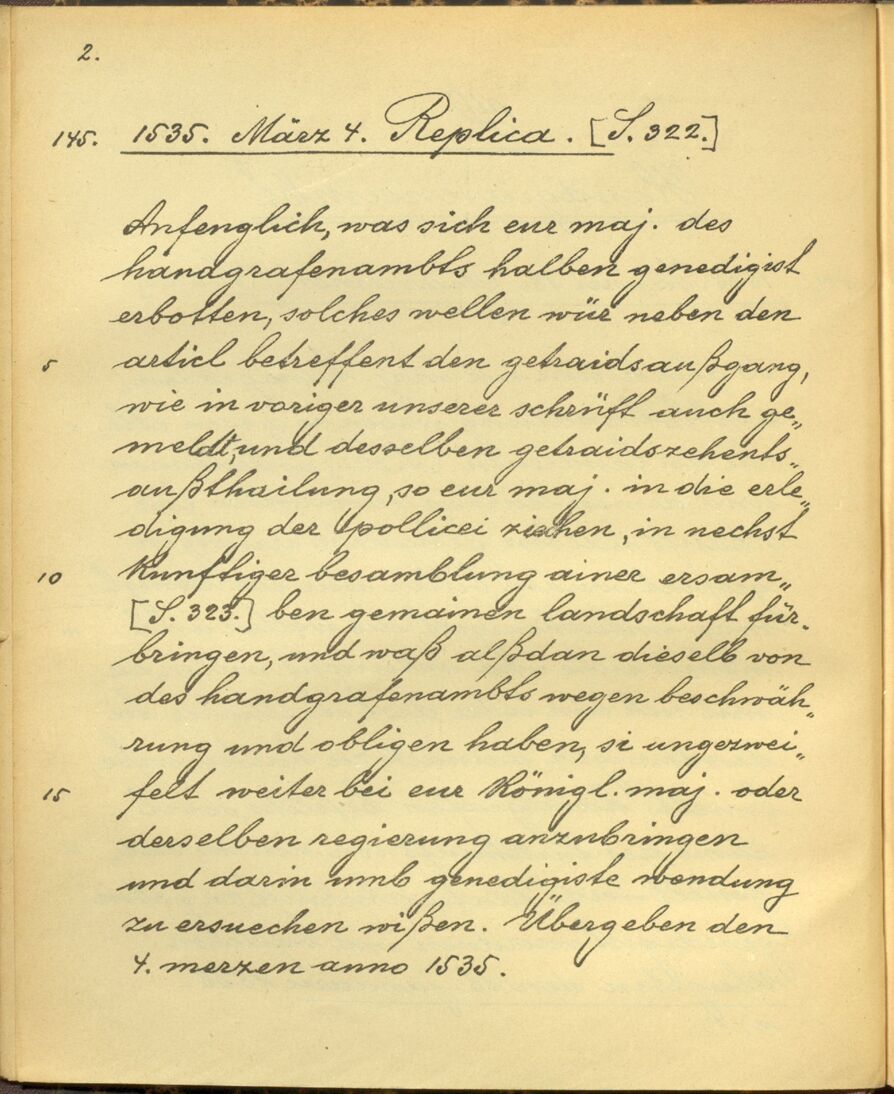 2.
145. 1535. März 4. Replica. [S. 322.]
Anfenglich, was sich eur maj. des
handgrafenambts halben genedigist
erbotten, solches wellen wür neben den
5 articl betreffent den getraidsaußgang,
wie in voriger unserer schrüft auch ge„
meldt, und desselben getraidszehents„
außthailung, so eur maj. in die erle„
digung der pollicei ziehen, in nechst
10 kunftiger besamblung ainer ersam„
[S. 323.] ben gemainen landschaft für„
bringen, und waß alßdan dieselb von
des handgrafenambts wegen beschwäh„
rung und obligen haben, si ungezwei„
15 felt weiter bei eur königl. maj. oder
derselben regierung anzubringen
und darin umb genedigiste wendung
zu ersuechen wißen. Übergeben den
4. merzen anno 1535.